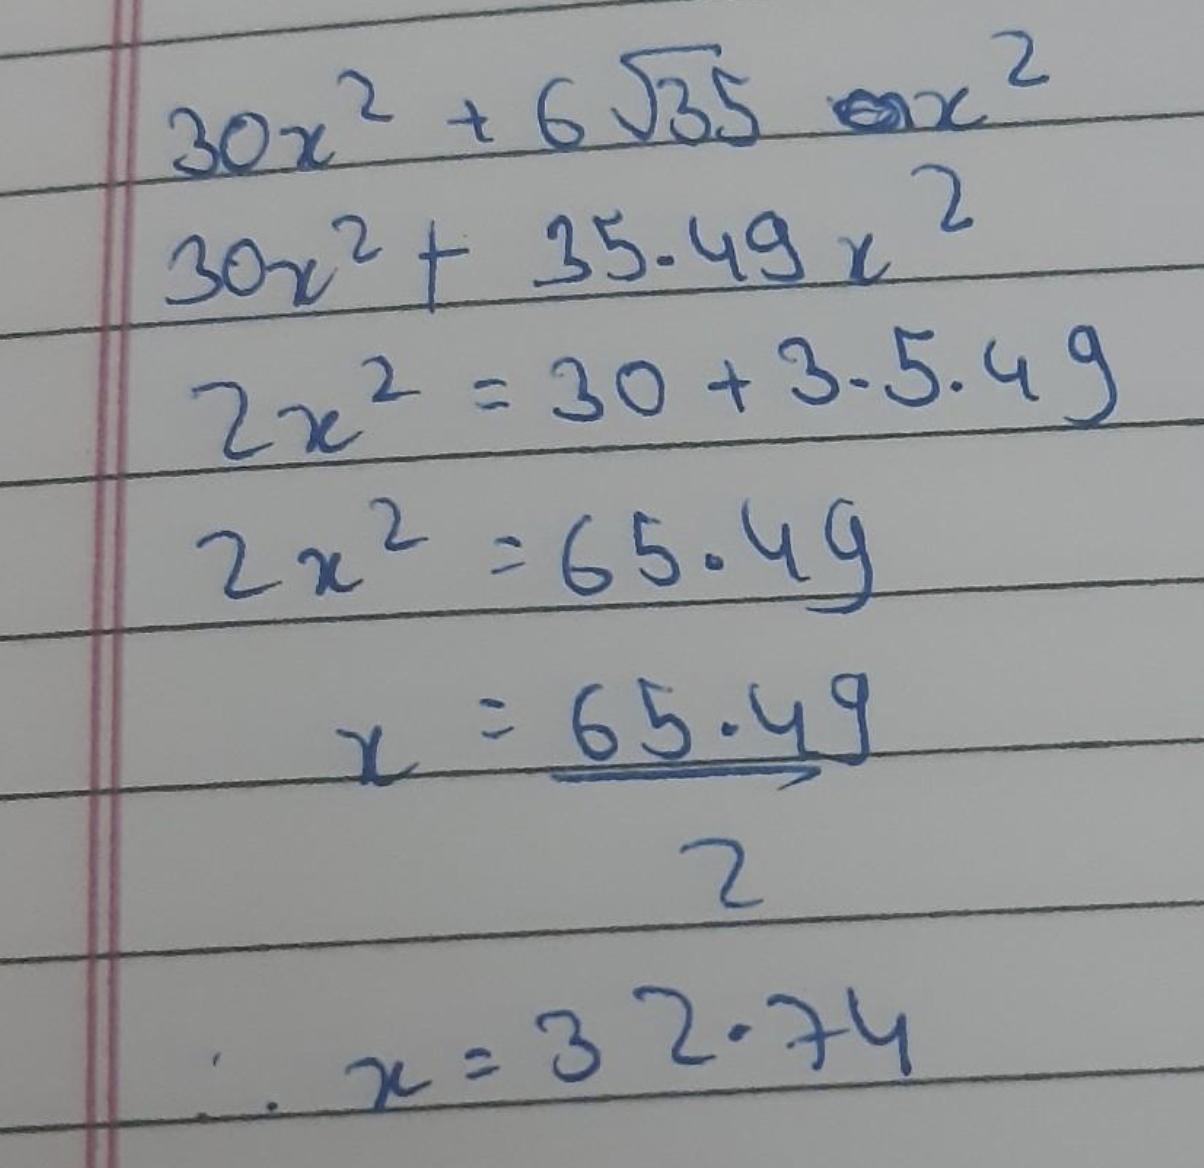 30x² + 6√35 x²
30x² + 35.49x²
2x² = 30 + 3.5.49
2x² = 65.49
x = 65.49
2
∴ x = 32.74